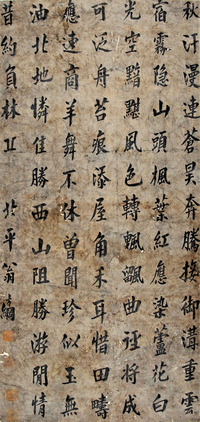 秋汗漫連蒼昊奔騰接御溝重雲
宿霧隐山頭楓葉紅應染蘆花白
光空黯黮風色轉颿飀曲徑將成
可泛舟苔痕添屋角禾耳惜田疇
應速商羊舞不休曽聞珍似玉無
油北地憐佳勝西山阻勝游閒情
昔約負林丘 北平翁